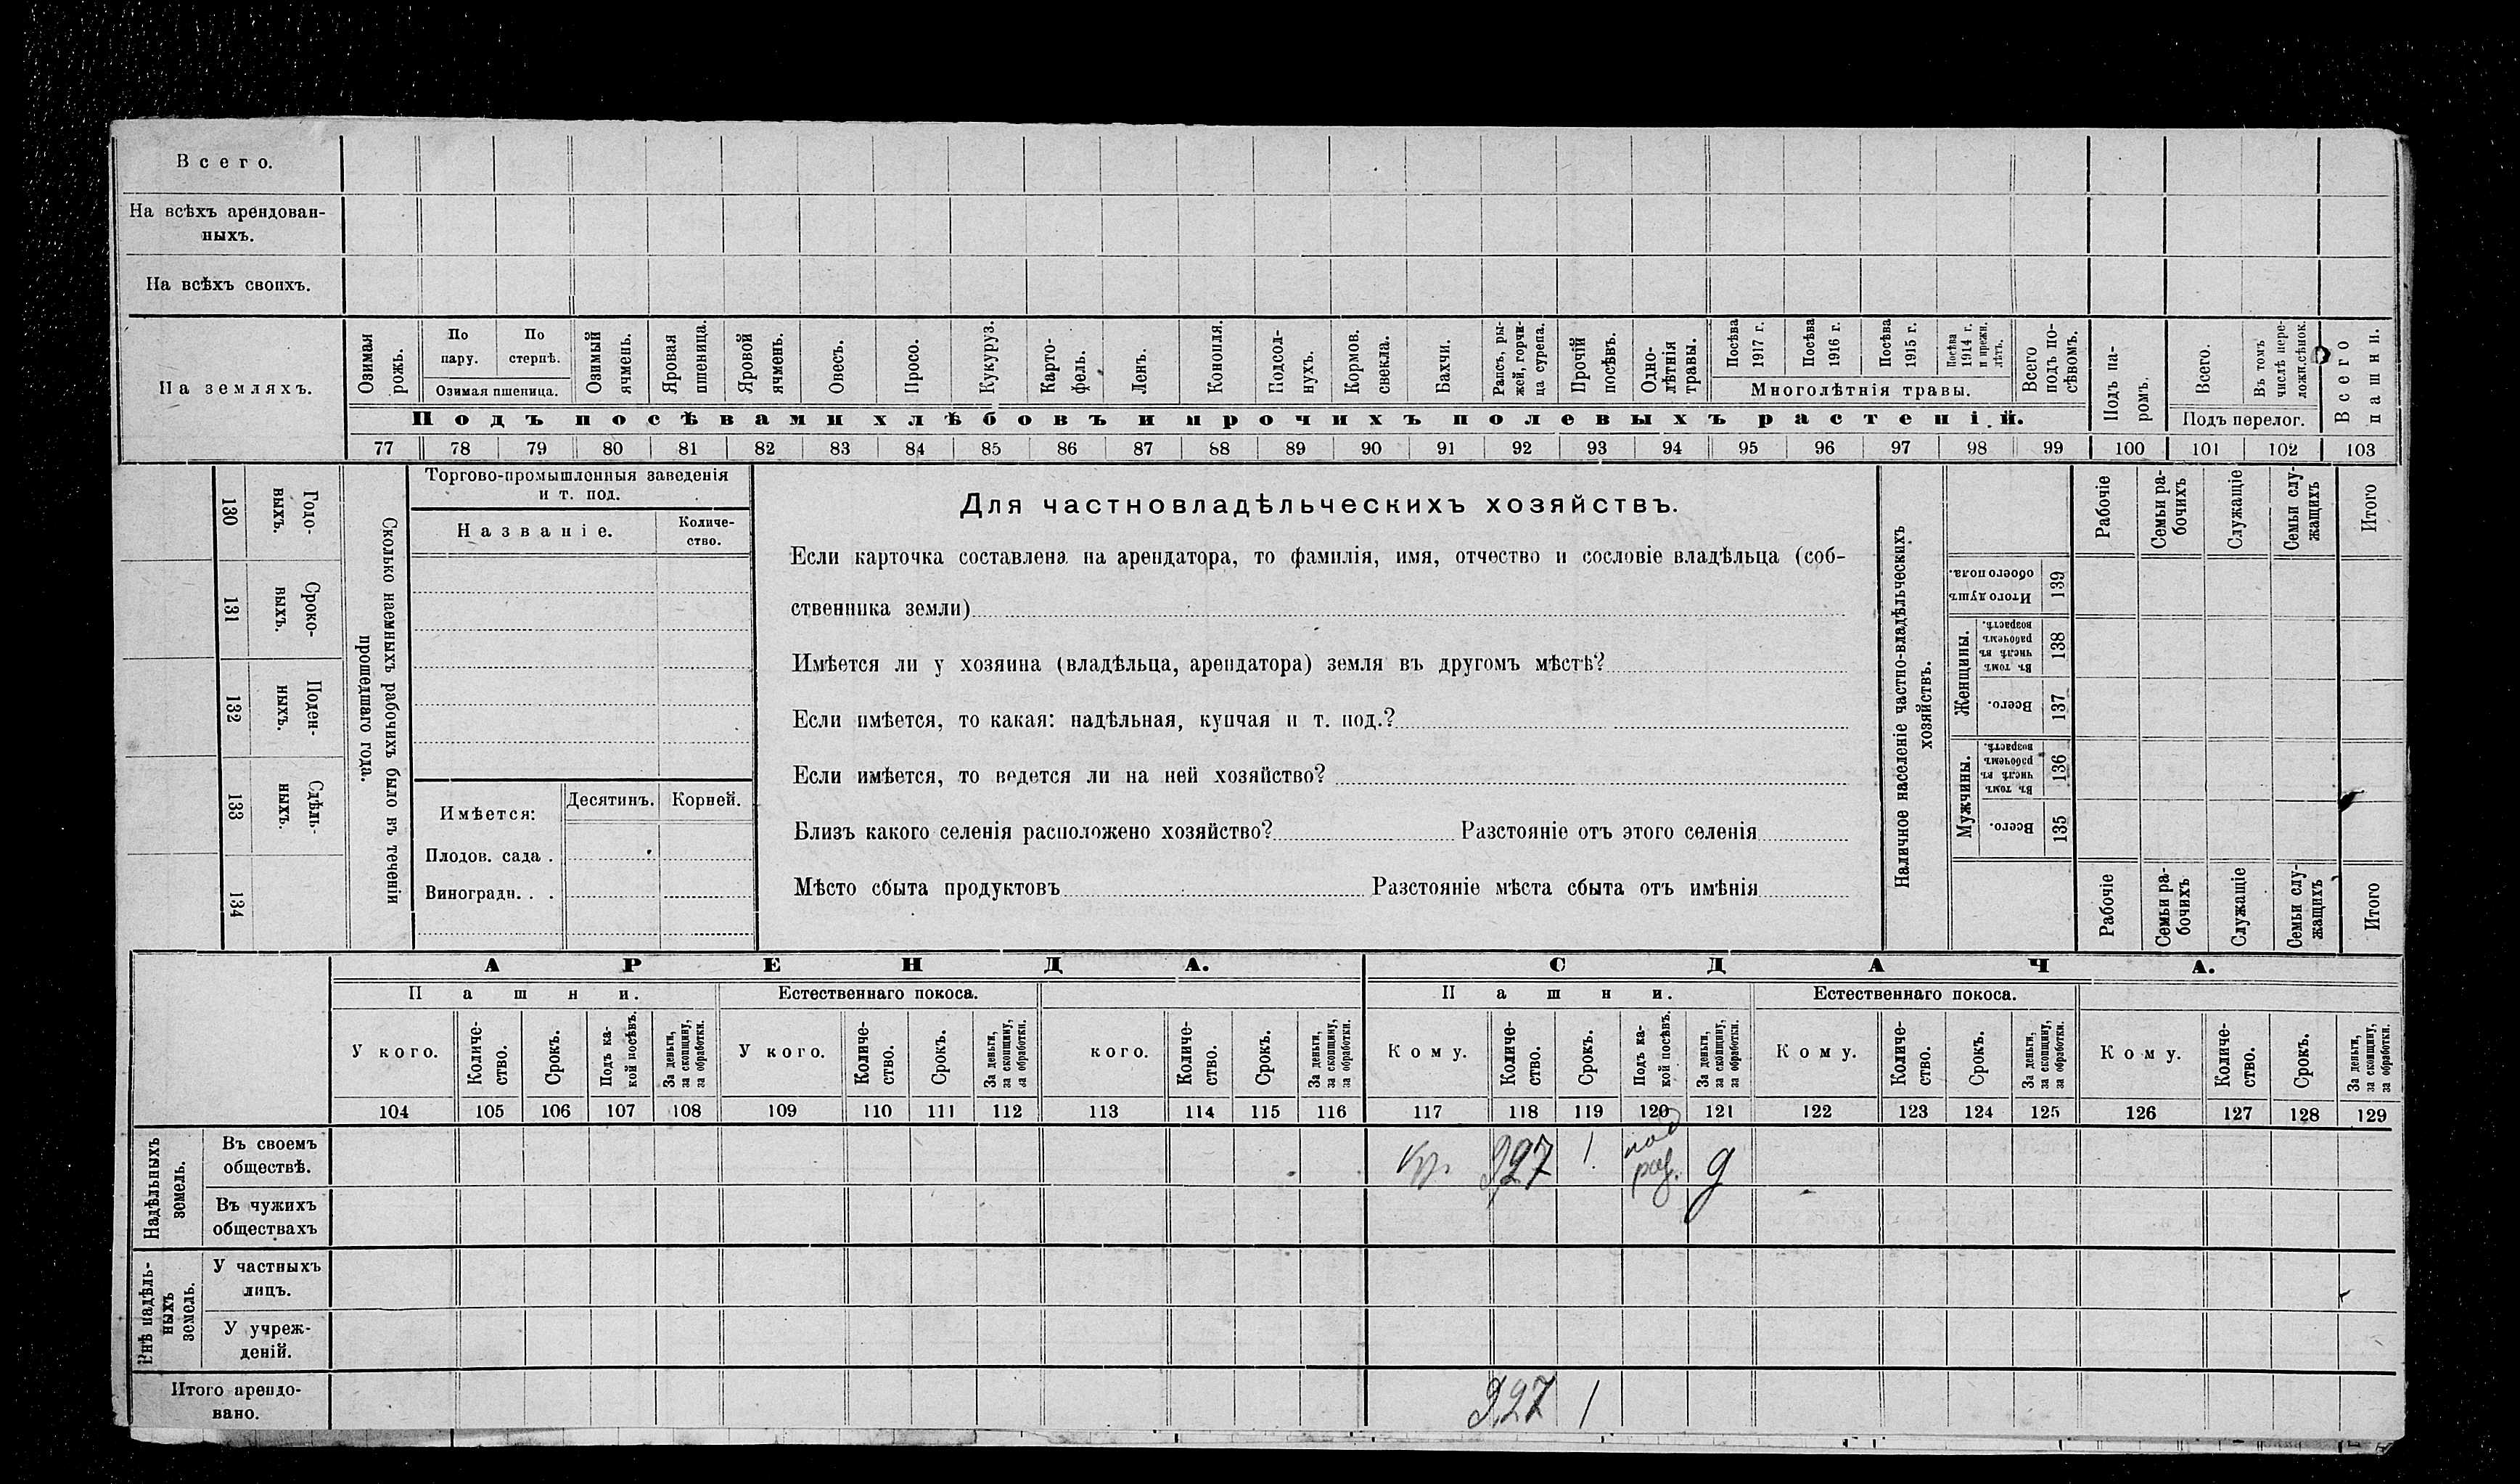 Всего.
На всѣхъ арендован-
ныхъ.
На всѣхъ своихъ.
На земляхъ.
Озимая рожь.
По пару.
По стернѣ.
Озимая пшеница.
Озимый ячмень.
Яровая пшеница.
Яровой ячмень.
Овесъ.
Просо.
Кукуруз.
Карто-
фель.
Ленъ.
Конопля.
Подсол-
нухъ.
Кормов. свекла.
Бахчи.
Рапсъ, ры-
жей, горчи-
ца сурепа.
Прочій посѣвъ.
Одно-
лѣтнія травы.
Посѣва 1917 г.
Посѣва 1916 г.
Посѣва 1915 г.
Посѣва 1914 г. и прежн. лѣтъ.
Многолѣтнія травы.
Всего подъ по-
сѣвомъ.
Подъ па-
ромъ.
Всего.
Въ томъ числѣ пере-
ложн.сѣнок.
Подъ перелог.
Всего пашни.
Подъ посѣвами хлѣбовъ и прочихъ полевыхъ растеній.
77 78 79 80 81 82 83 84 85 86 87 88 89 90 91 92 93 94 95 96 97 98 99 100 101 102 103
130 Годо-
выхъ.
131 Сроко-
выхъ.
132 Поден-
ныхъ.
133 Сдѣль-
ныхъ.
134
Сколько наемныхъ рабочихъ было въ теченіи
прошедшаго года.
Торгово-промышленныя заведенія
и т. под.
Названіе.
Количе-
ство.
Имѣется:
Десятинъ.
Корней.
Плодов. сада .
Виноградн. . .
Для частновладѣльческихъ хозяйствъ.
Если карточка составлена на арендатора, то фамилія, имя, отчество и сословіе владѣльца (соб-
ственника земли)
Имѣется ли у хозяина (владѣльца, арендатора) земля въ другомъ мѣстѣ?
Если имѣется, то какая: надѣльная, купчая и т. под.?
Если имѣется, то ведется ли на ней хозяйство?
Близъ какого селенія расположено хозяйство? Разстояніе отъ этого селенія
Мѣсто сбыта продуктовъ Разстояніе мѣста сбыта отъ имѣнія
Наличное населеніе частно-владѣльческихъ
хозяйствъ.
Рабочіе
Семьи ра-
бочихъ
Служащіе
Семьи слу-
жащихъ
Итого
Итого душъ обоего пола. 139
Женщины.
Въ томъ числѣ въ рабочемъ возрастѣ. 138
Всего. 137
Мужчины.
Въ томъ числѣ въ рабочемъ возрастѣ. 136
Всего. 135
Рабочіе
Семьи ра-
бочихъ
Служащіе
Семьи слу-
жащихъ
Итого
АРЕНДА.
СДАЧА.
Пашни.
Естественнаго покоса.
Пашни.
Естественнаго покоса.
У кого.
Количе-
ство.
Срокъ.
Подъ ка-
кой посѣвъ.
За деньги,
за скопщину,
за обработки.
У кого.
Количе-
ство.
Срокъ.
За деньги,
за скопщину,
за обработки.
кого.
Количе-
ство.
Срокъ.
За деньги,
за скопщину,
за обработки.
Кому.
Количе-
ство.
Срокъ.
Подъ ка-
кой посѣвъ.
За деньги,
за скопщину,
за обработки.
Кому.
Количе-
ство.
Срокъ.
За деньги,
за скопщину,
за обработки.
Кому.
Количе-
ство.
Срокъ.
За деньги,
за скопщину,
за обработки.
104 105 106 107 108 109 110 111 112 113 114 115 116 117 118 119 120 121 122 123 124 125 126 127 128 129
Надѣльныхъ
земель.
Въ своемъ
обществѣ.
кр. 9,27 1.
Въ чужихъ
обществахъ
Внѣ надѣль-
ныхъ
земель.
У частныхъ
лицъ.
У учреж-
деній.
Итого арендо-
вано.
9,27 1